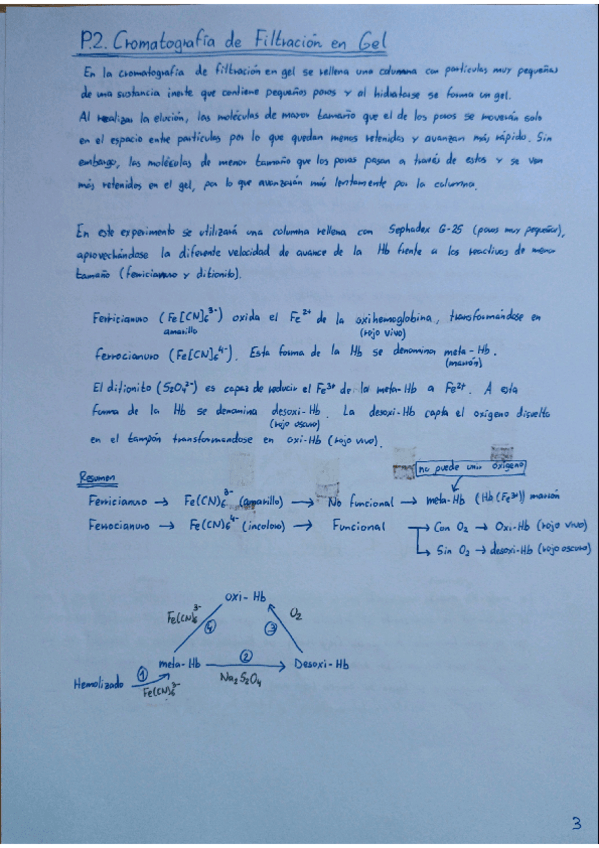 P.2. Cromatografía de Filtración en Gel
En la cromatografía de filtración en gel se rellena una columna con partículas muy pequeñas
de una sustancia inerte que contiene pequeños poros y al hidratarse se forma un gel.
Al realizar la elución, las moléculas de mayor tamaño que el de los poros se moverán solo
en el espacio entre partículas por lo que quedan menos retenidas y avanzan más rápido. Sin
embargo, las moléculas de menor tamaño que los poros pasan a través de estos y se ven
más retenidas en el gel, por lo que avanzarán más lentamente por la columna.
En este experimento se utilizará una columna rellena con Sephadex G-25 (poros muy pequeños),
aprovechándose la diferente velocidad de avance de la Hb frente a los reactivos de menor
tamaño (ferricianuro y ditionito).
Ferricianuro (Fe[CN]₆³⁻) oxida el Fe²⁺ de la oxihemoglobina, transformándose en
amarillo (rojo vivo)
ferrocianuro (Fe[CN]₆⁴⁻). Esta forma de la Hb se denomina meta-Hb.
(marrón)
El ditionito (S₂O₄²⁻) es capaz de reducir el Fe³⁺ de la meta-Hb a Fe²⁺. A esta
forma de la Hb se denomina desoxi-Hb. La desoxi-Hb capta el oxígeno disuelto
(rojo oscuro)
en el tampón transformándose en oxi-Hb (rojo vivo).
no puede unir oxígeno
Resumen
Ferricianuro → Fe(CN)₆³⁻ (amarillo) → No funcional → meta-Hb (Hb(Fe³⁺)) marrón
Ferrocianuro → Fe(CN)₆⁴⁻ (incoloro) → Funcional → Con O₂ → Oxi-Hb (rojo vivo)
→ Sin O₂ → desoxi-Hb (rojo oscuro)
oxi-Hb
Fe(CN)₆³⁻ ④ ③ O₂
meta-Hb ② Desoxi-Hb
Na₂S₂O₄
Hemolizado ①
Fe(CN)₆³⁻
3